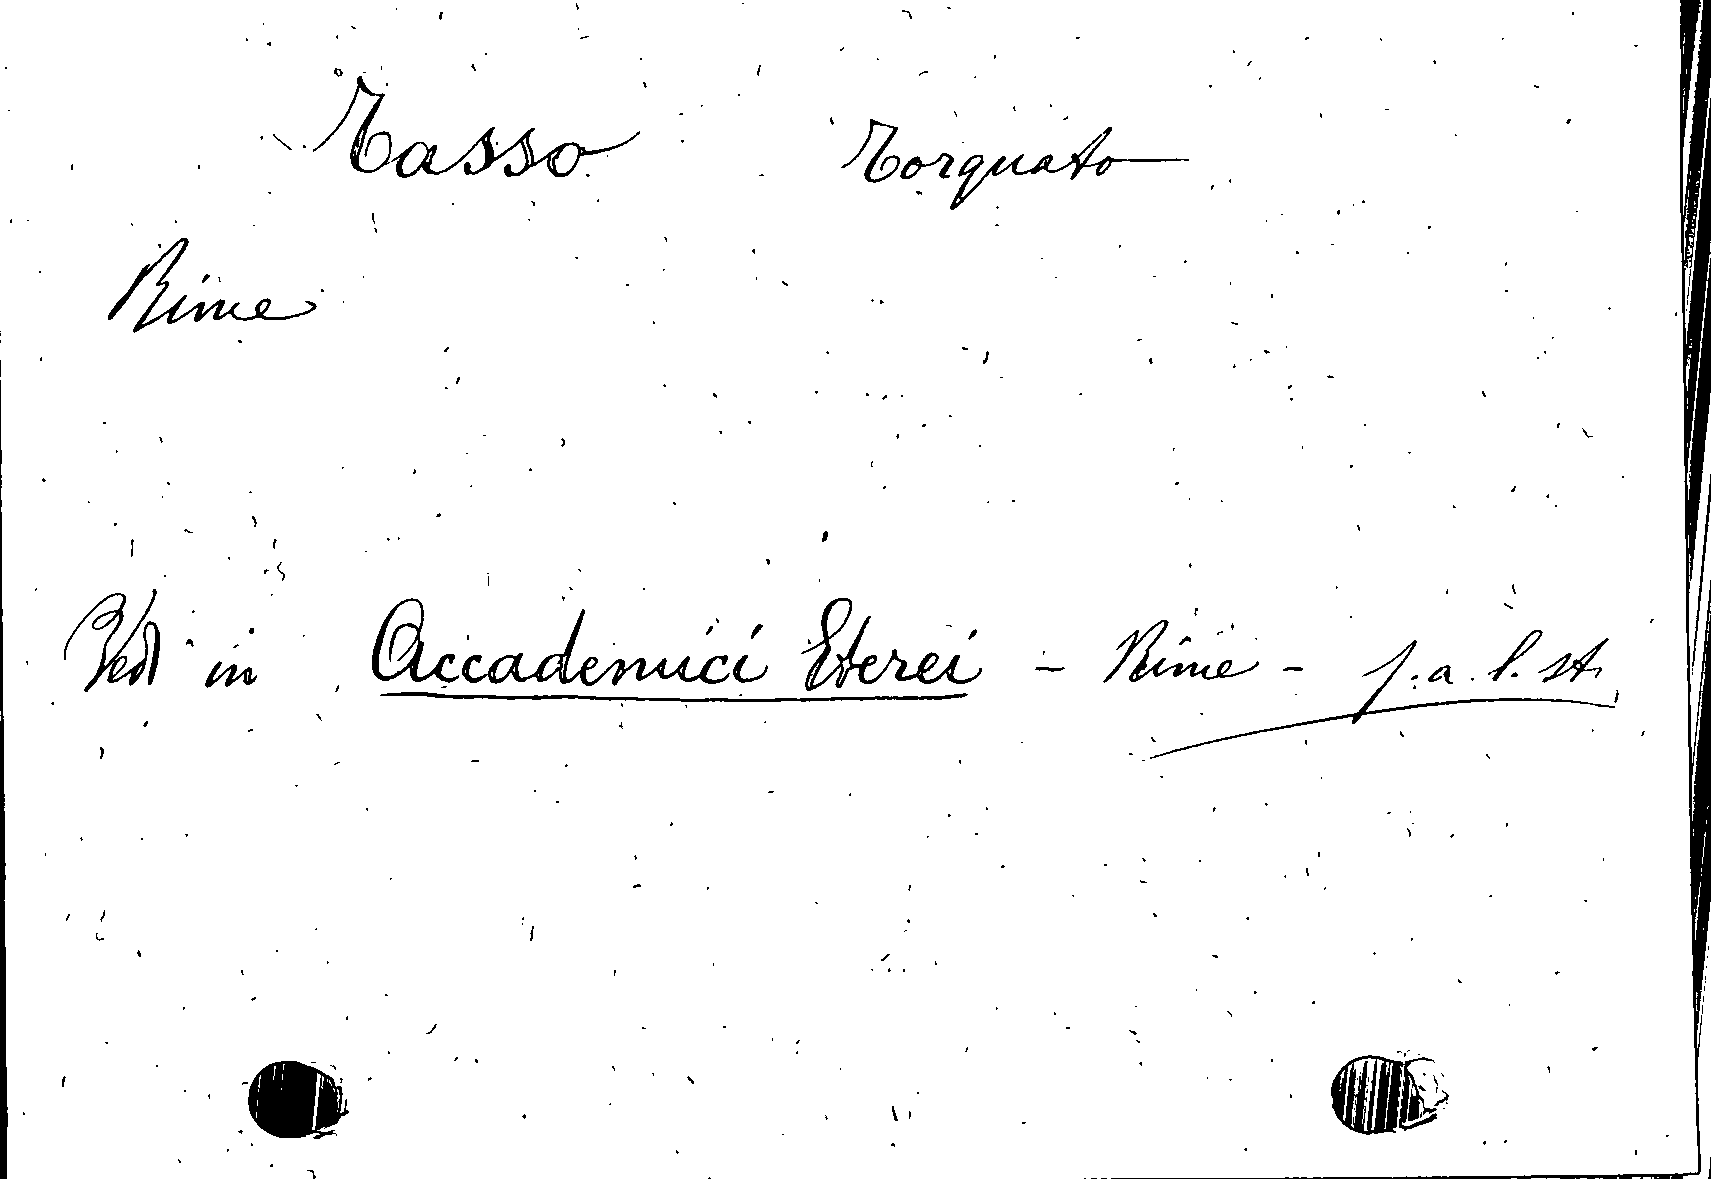 Tasso Torquato
Rime
Vedi in Accademici Eterei - Rime - s. a. l. st.